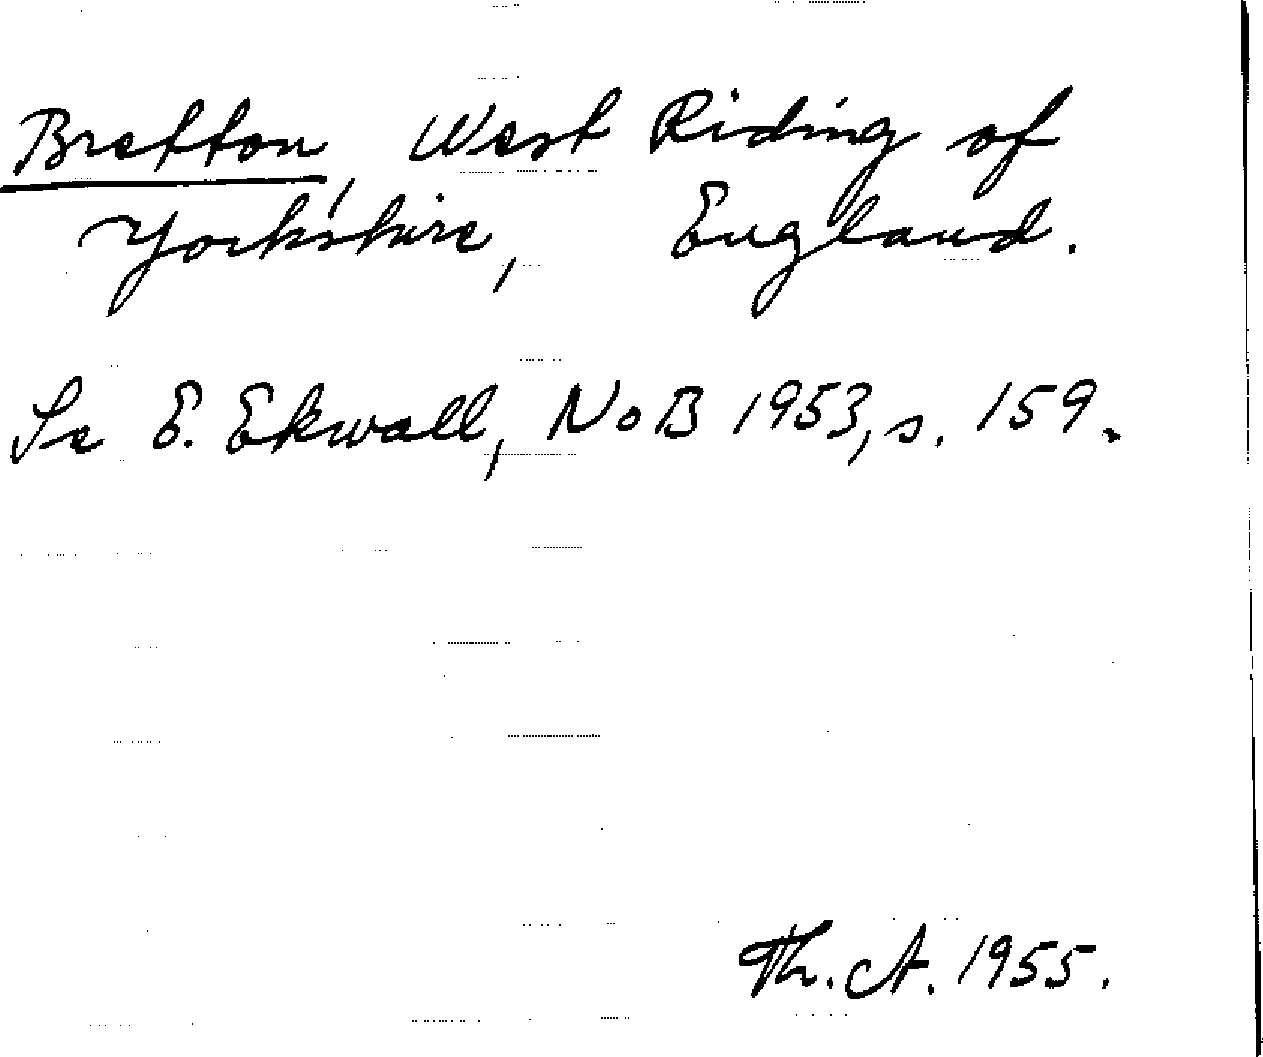 Bretton, West Riding of
Yorkshire, England.
Se E. Ekwall, NoB 1953, s. 159.
Th. A. 1955.